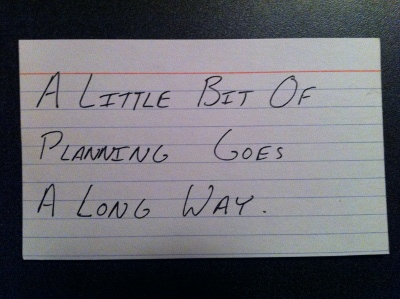 A LITTLE BIT OF
PLANNING GOES
A LONG WAY.